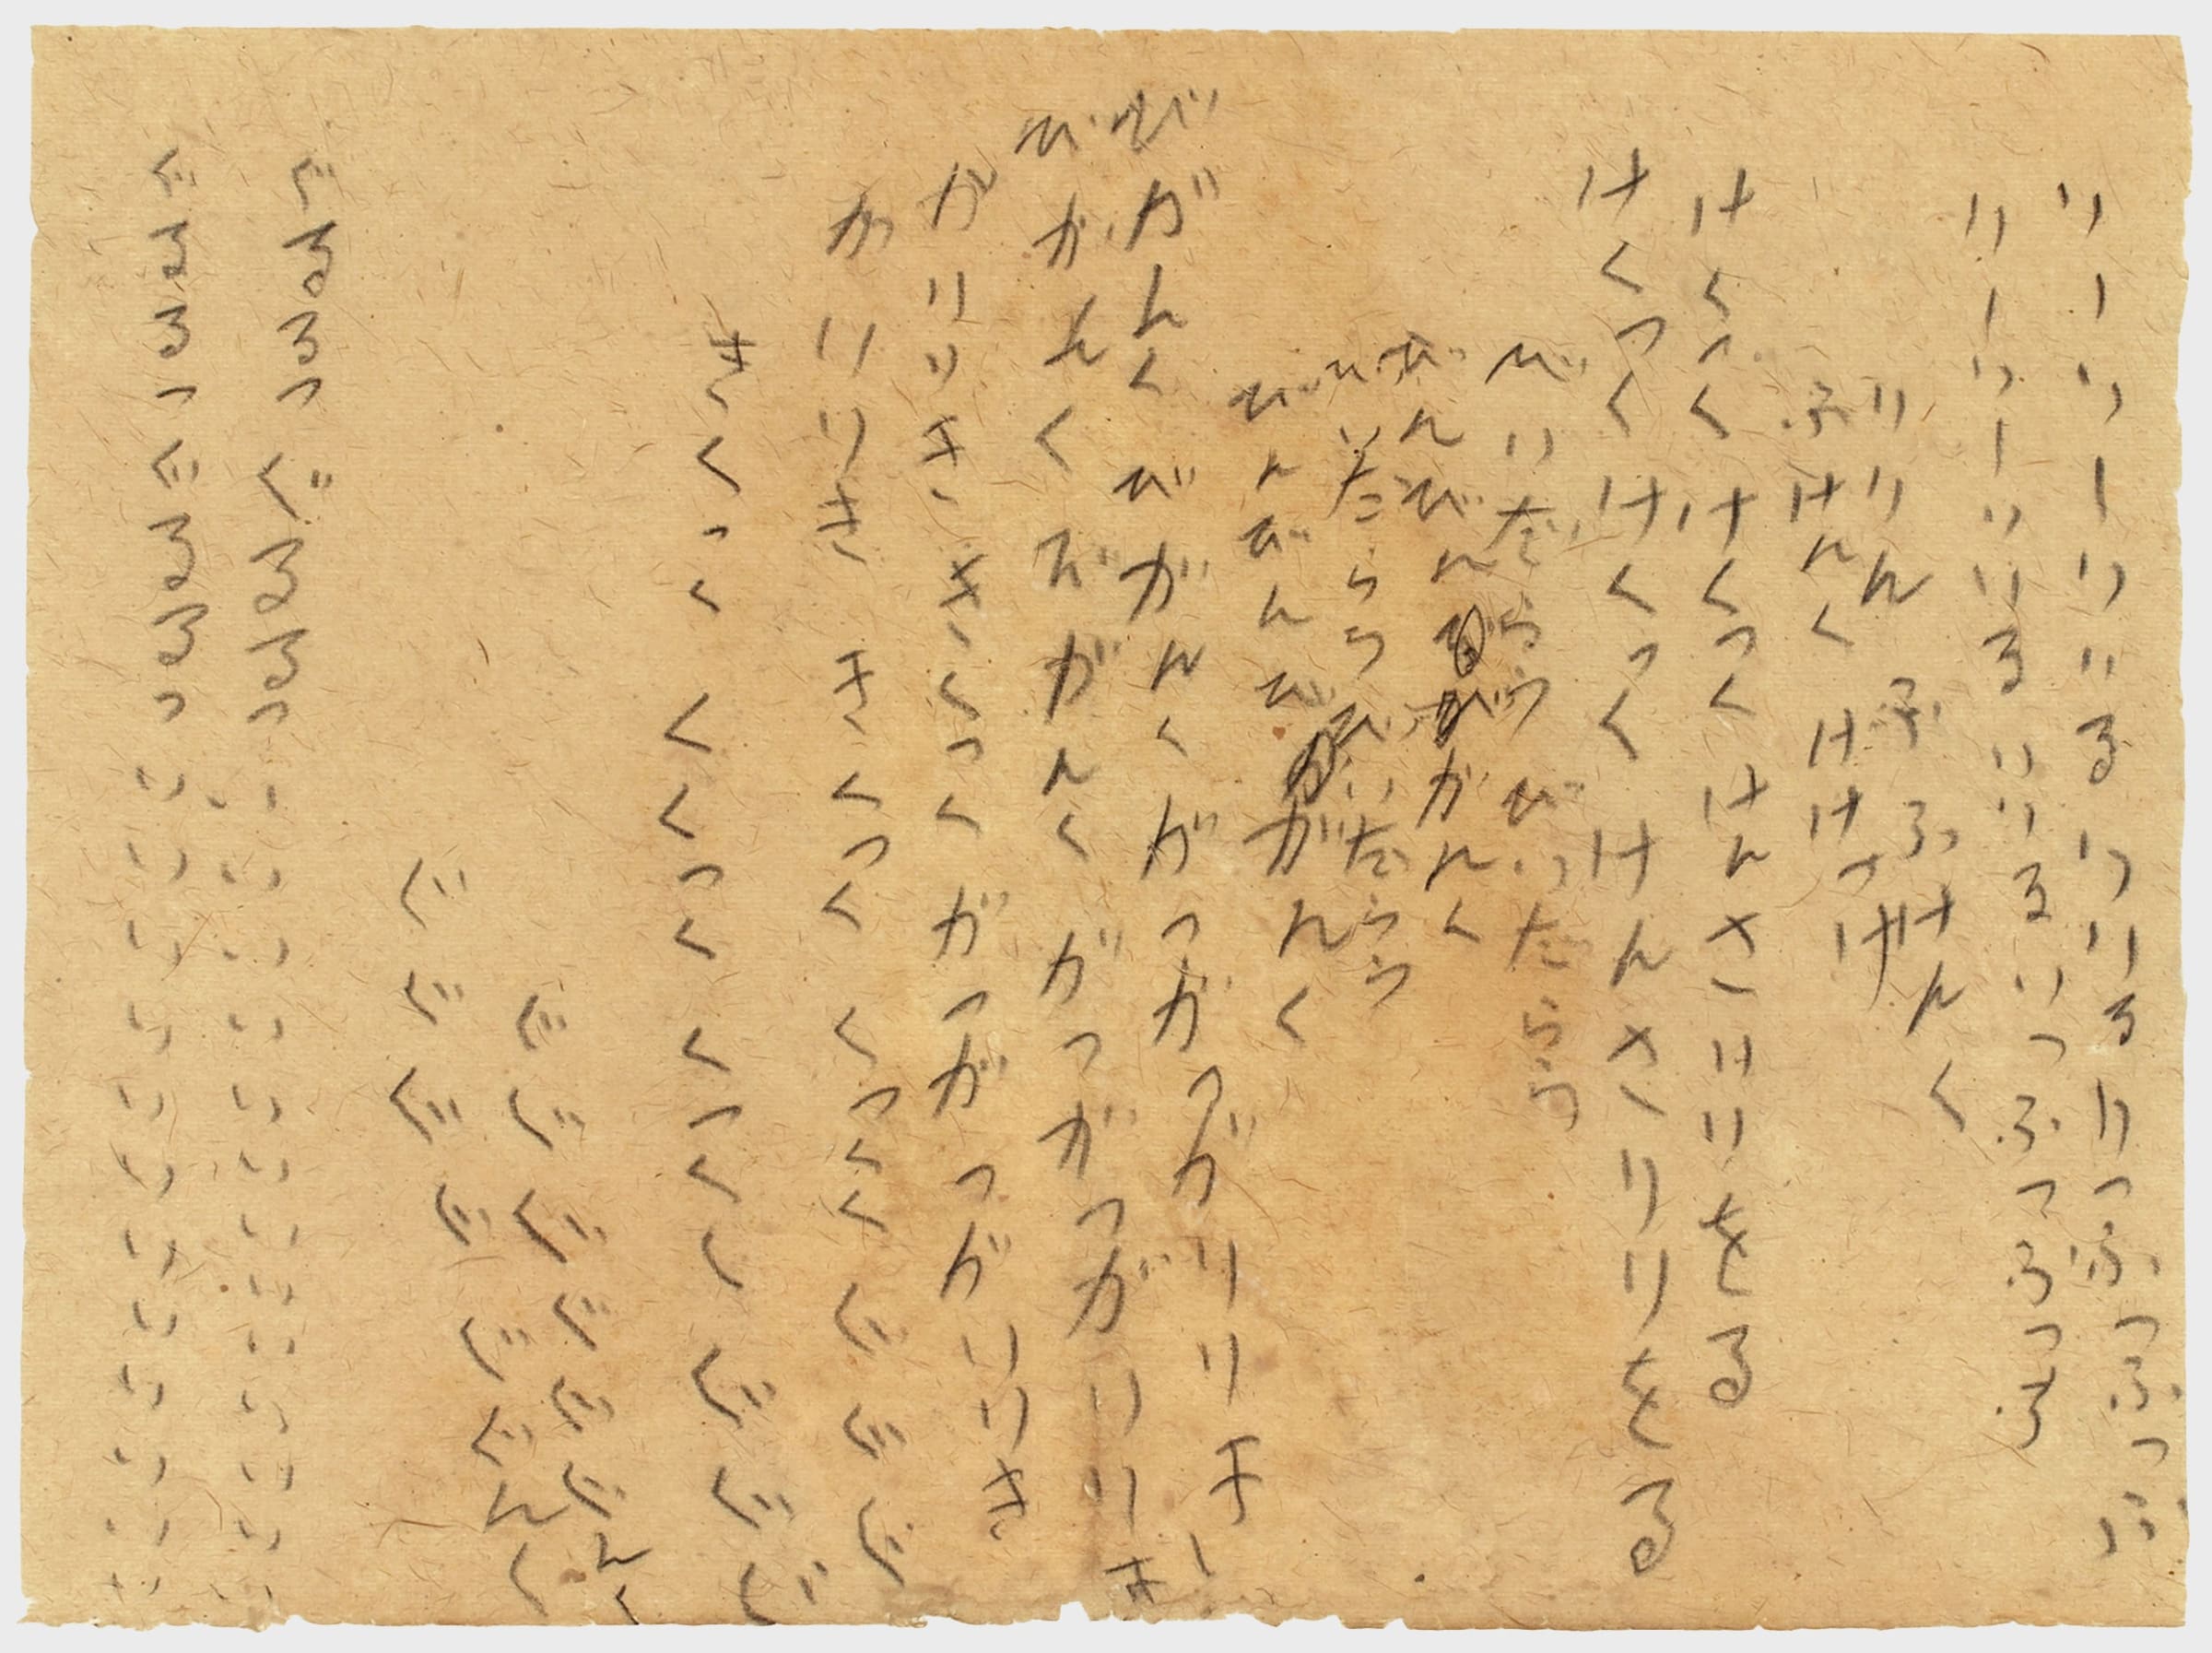 りーりーりりる りりる りっぶっぶっぶ
りーりーりりる りりる りっぶっぶっぶ
りりん ふ ふけんく
ぶけんく けけっげ
けくっく けくっく けんさけりをる
けくっく けくっく けんさりりをる
びいだらら びったらら
びんびん びがんく
びいだらら びいだらら
びんびんび ががんく
びがんくびがんくがっがっがりりき
びがんくびがんくがっがっがりりき
がりりききくっくがっがっがりりき
がりりききくっくくっくくぐぐぐ
きくっくくくっくくっくくぐぐぐ
ぐぐぐぐぐぐんく
ぐぐぐぐぐぐんく
ぐるるっぐるるっいいいいいいいいいい
ぐるるっぐるるっいいいいいいいいいい